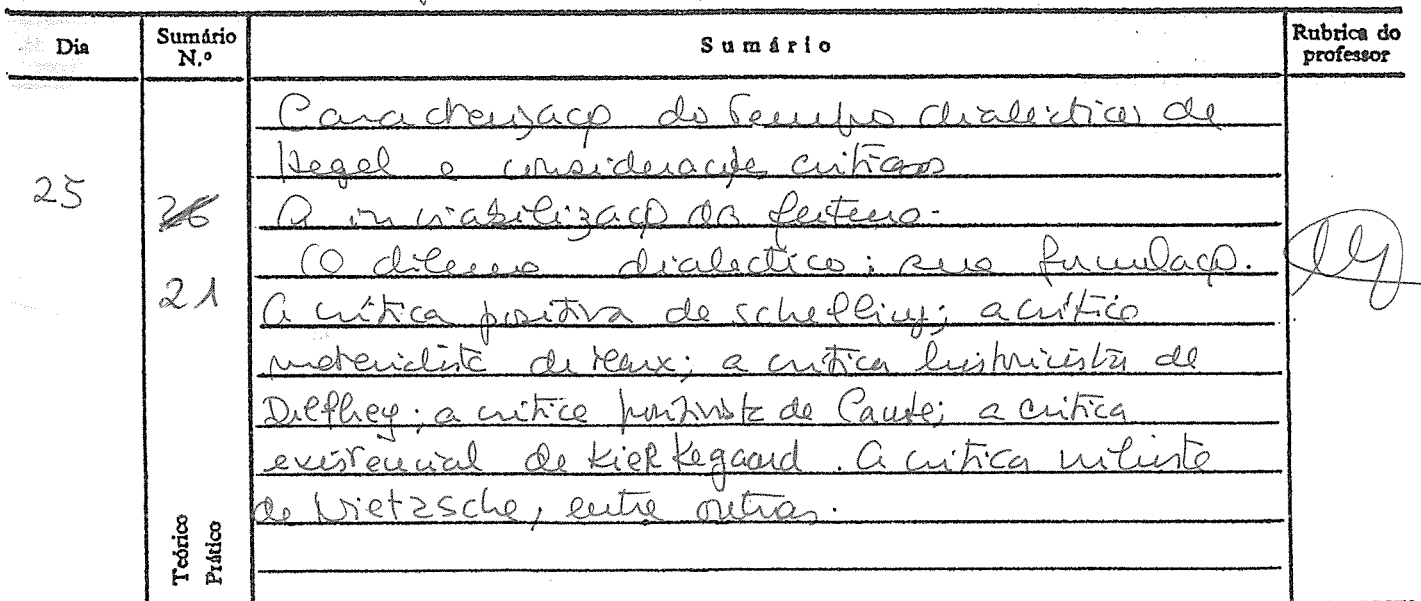 Dia
Sumário N.º
Sumário
Rubrica do professor
Caracterização do tempo dialéctico de
Hegel e considerações críticas
25
26
A inviabilização do futuro.
O dilema dialectico; sua formulação.
21
A crítica positiva de Schelling; a crítica
materialista de Marx; a crítica historicista de
Dilthey; a critica positivista de Comte; a critica
existencial de Kierkegaard. A crítica niilista
de Nietzsche, entre outras.
Teórico
Prático